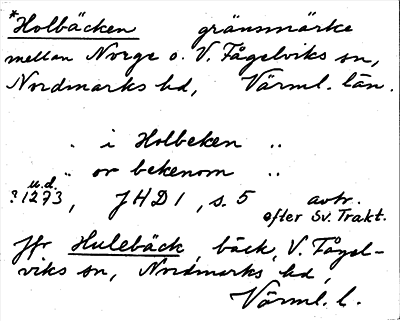 *Holbäcken gränsmärke
mellan Norge o. V. Fågelviks sn,
Nordmarks hd, Värml. län.
.. i Holbeken ..
.. or bekenom ..
u.d.
? 1273, JHD 1, s. 5 avtr.
efter Sv. Trakt.
Jfr Hulebäck, bäck, V. Fågel-
viks sn, Nordmarks hd,
Värml. l.